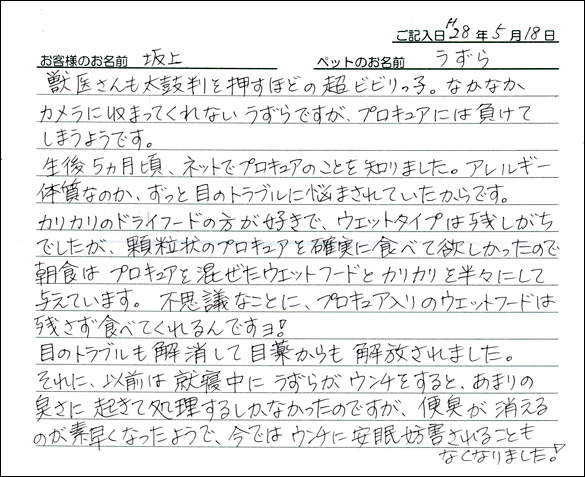 ご記入日 H28年5月18日
お客様のお名前 坂上 ペットのお名前 うずら
獣医さんも太鼓判を押すほどの超ビビりっ子。なかなか
カメラに収まってくれないうずらですが、プロキュアには負けて
しまうようです。
生後5ヵ月頃、ネットでプロキュアのことを知りました。アレルギー
体質なのか、ずっと目のトラブルに悩まされていたからです。
カリカリのドライフードの方が好きで、ウェットタイプは残しがち
でしたが、顆粒状のプロキュアを確実に食べて欲しかったので
朝食はプロキュアを混ぜたウエットフードとカリカリを半々にして
与えています。不思議なことに、プロキュア入りのウエットフードは
残さず食べてくれるんですヨ!
目のトラブルも解消して目薬からも解放されました。
それに、以前は就寝中にうずらがウンチをすると、あまりの
臭さに起きて処理するしかなかったのですが、便臭が消える
のが素早くなったようで、今ではウンチに安眠妨害されることも
なくなりました!